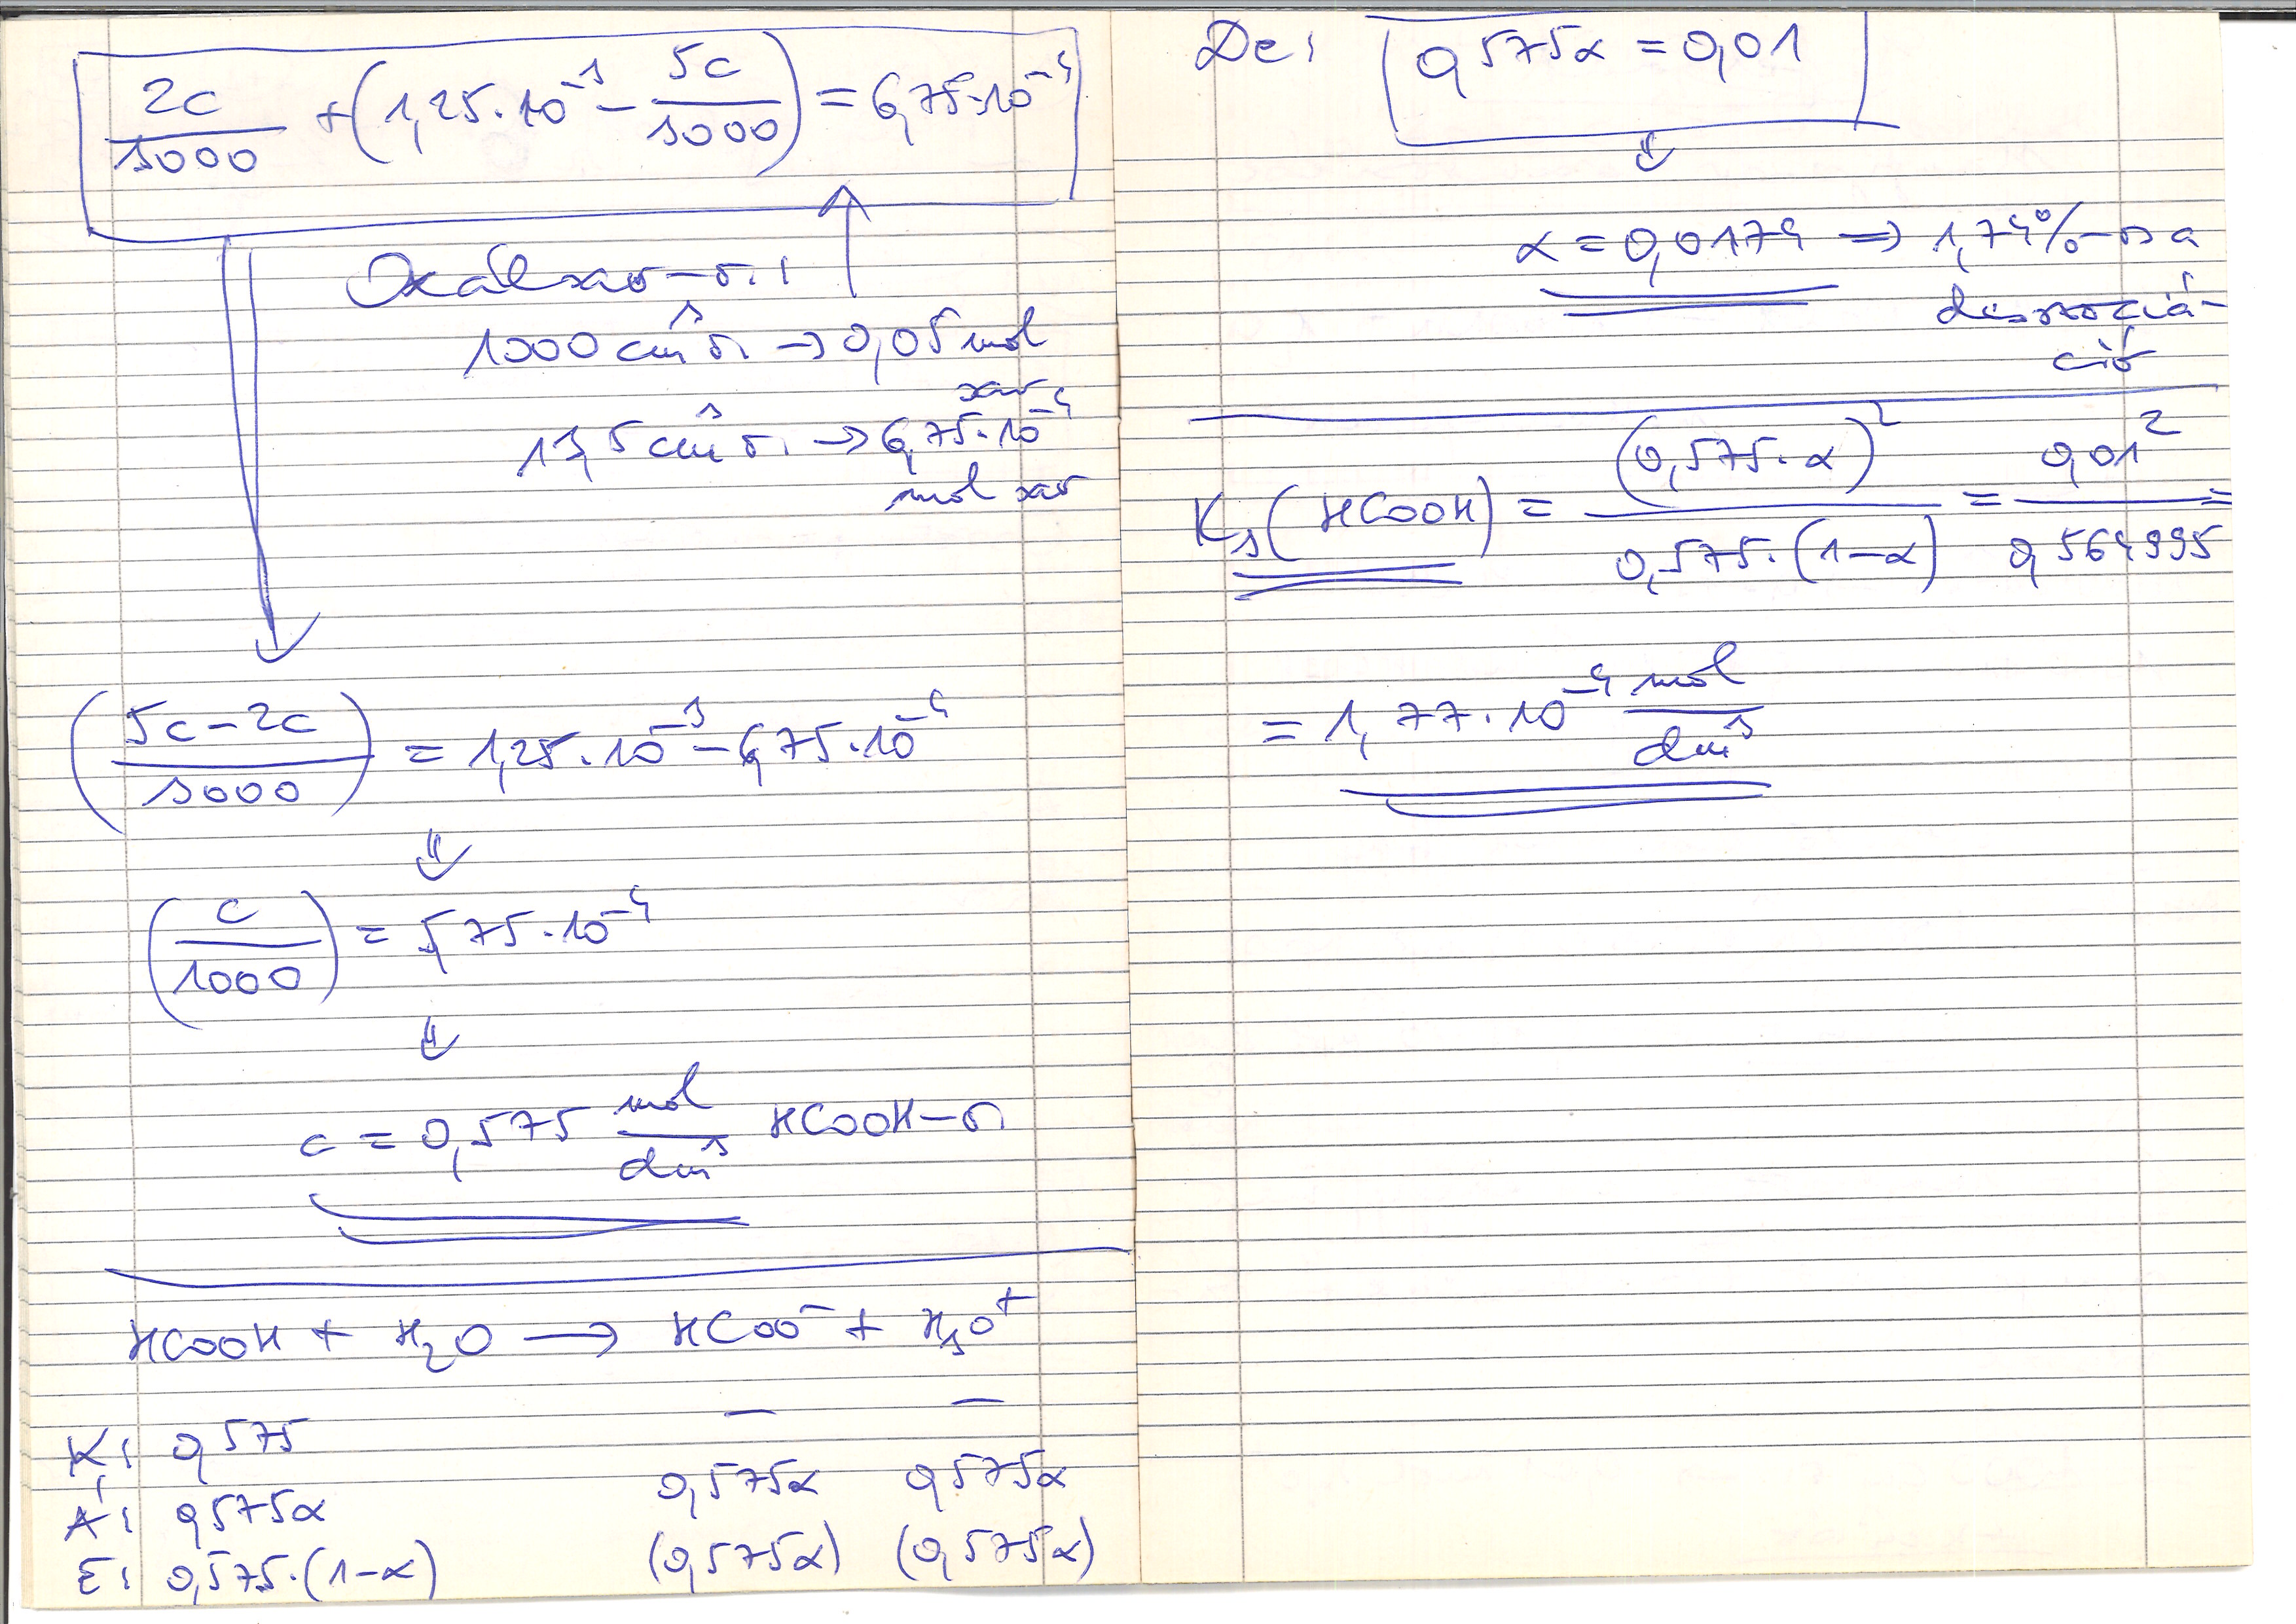 2c/3000 + (1,25·10⁻³ - 5c/3000) = 6,75·10⁻⁴
Oxálsav-o.:
1000 cm³ o. → 0,05 mol
sav
13,5 cm³ o. → 6,75·10⁻⁴
mol sav
((5c-2c)/3000) = 1,25·10⁻³ - 6,75·10⁻⁴
⇓
(c/1000) = 5,75·10⁻⁴
⇓
c = 0,575 mol/dm³ HCOOH-o.
HCOOH + H₂O → HCOO⁻ + H₃O⁺
K: 0,575 — —
Á: 0,575α 0,575α 0,575α
E: 0,575·(1-α) (0,575α) (0,575α)
De: 0,575α = 0,01
⇓
α = 0,0174 ⇒ 1,74%-os a
disszociá-
ció
Kₛ(HCOOH) = (0,575·α)²/(0,575·(1-α)) = 0,01²/0,564995 =
= 1,77·10⁻⁴ mol/dm³